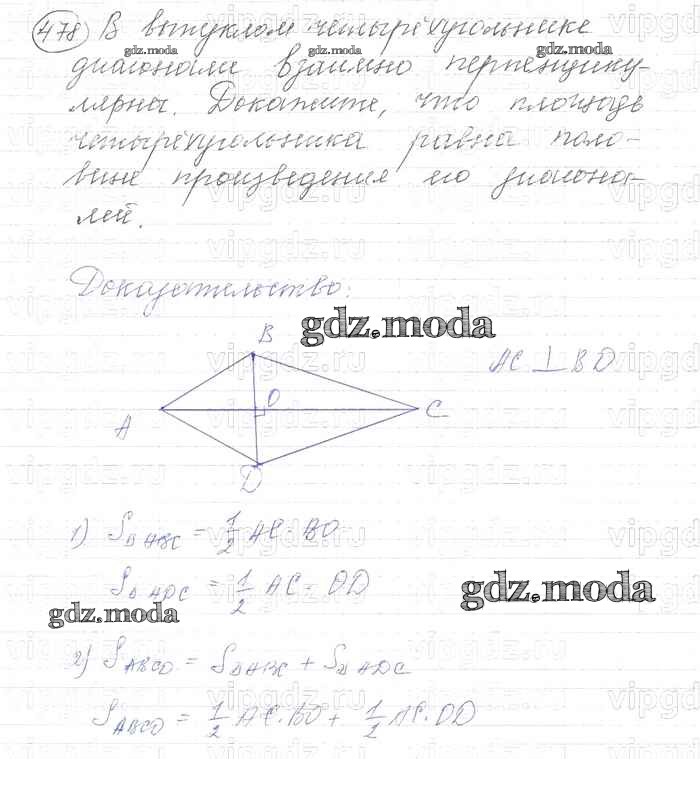 478 В выпуклом четырёхугольнике
диагонали взаимно перпендику-
лярны. Докажите, что площадь
четырёхугольника равна поло-
вине произведения его диагона-
лей.
Доказательство:
gdz.moda
B
AC ⊥ BD
A
O
C
D
1) S△ABC = 1/2 AC · BO
S△ADC = 1/2 AC · OD
gdz.moda
gdz.moda
2) SABCD = S△ABC + S△ADC
SABCD = 1/2 AC · BO + 1/2 AC · OD